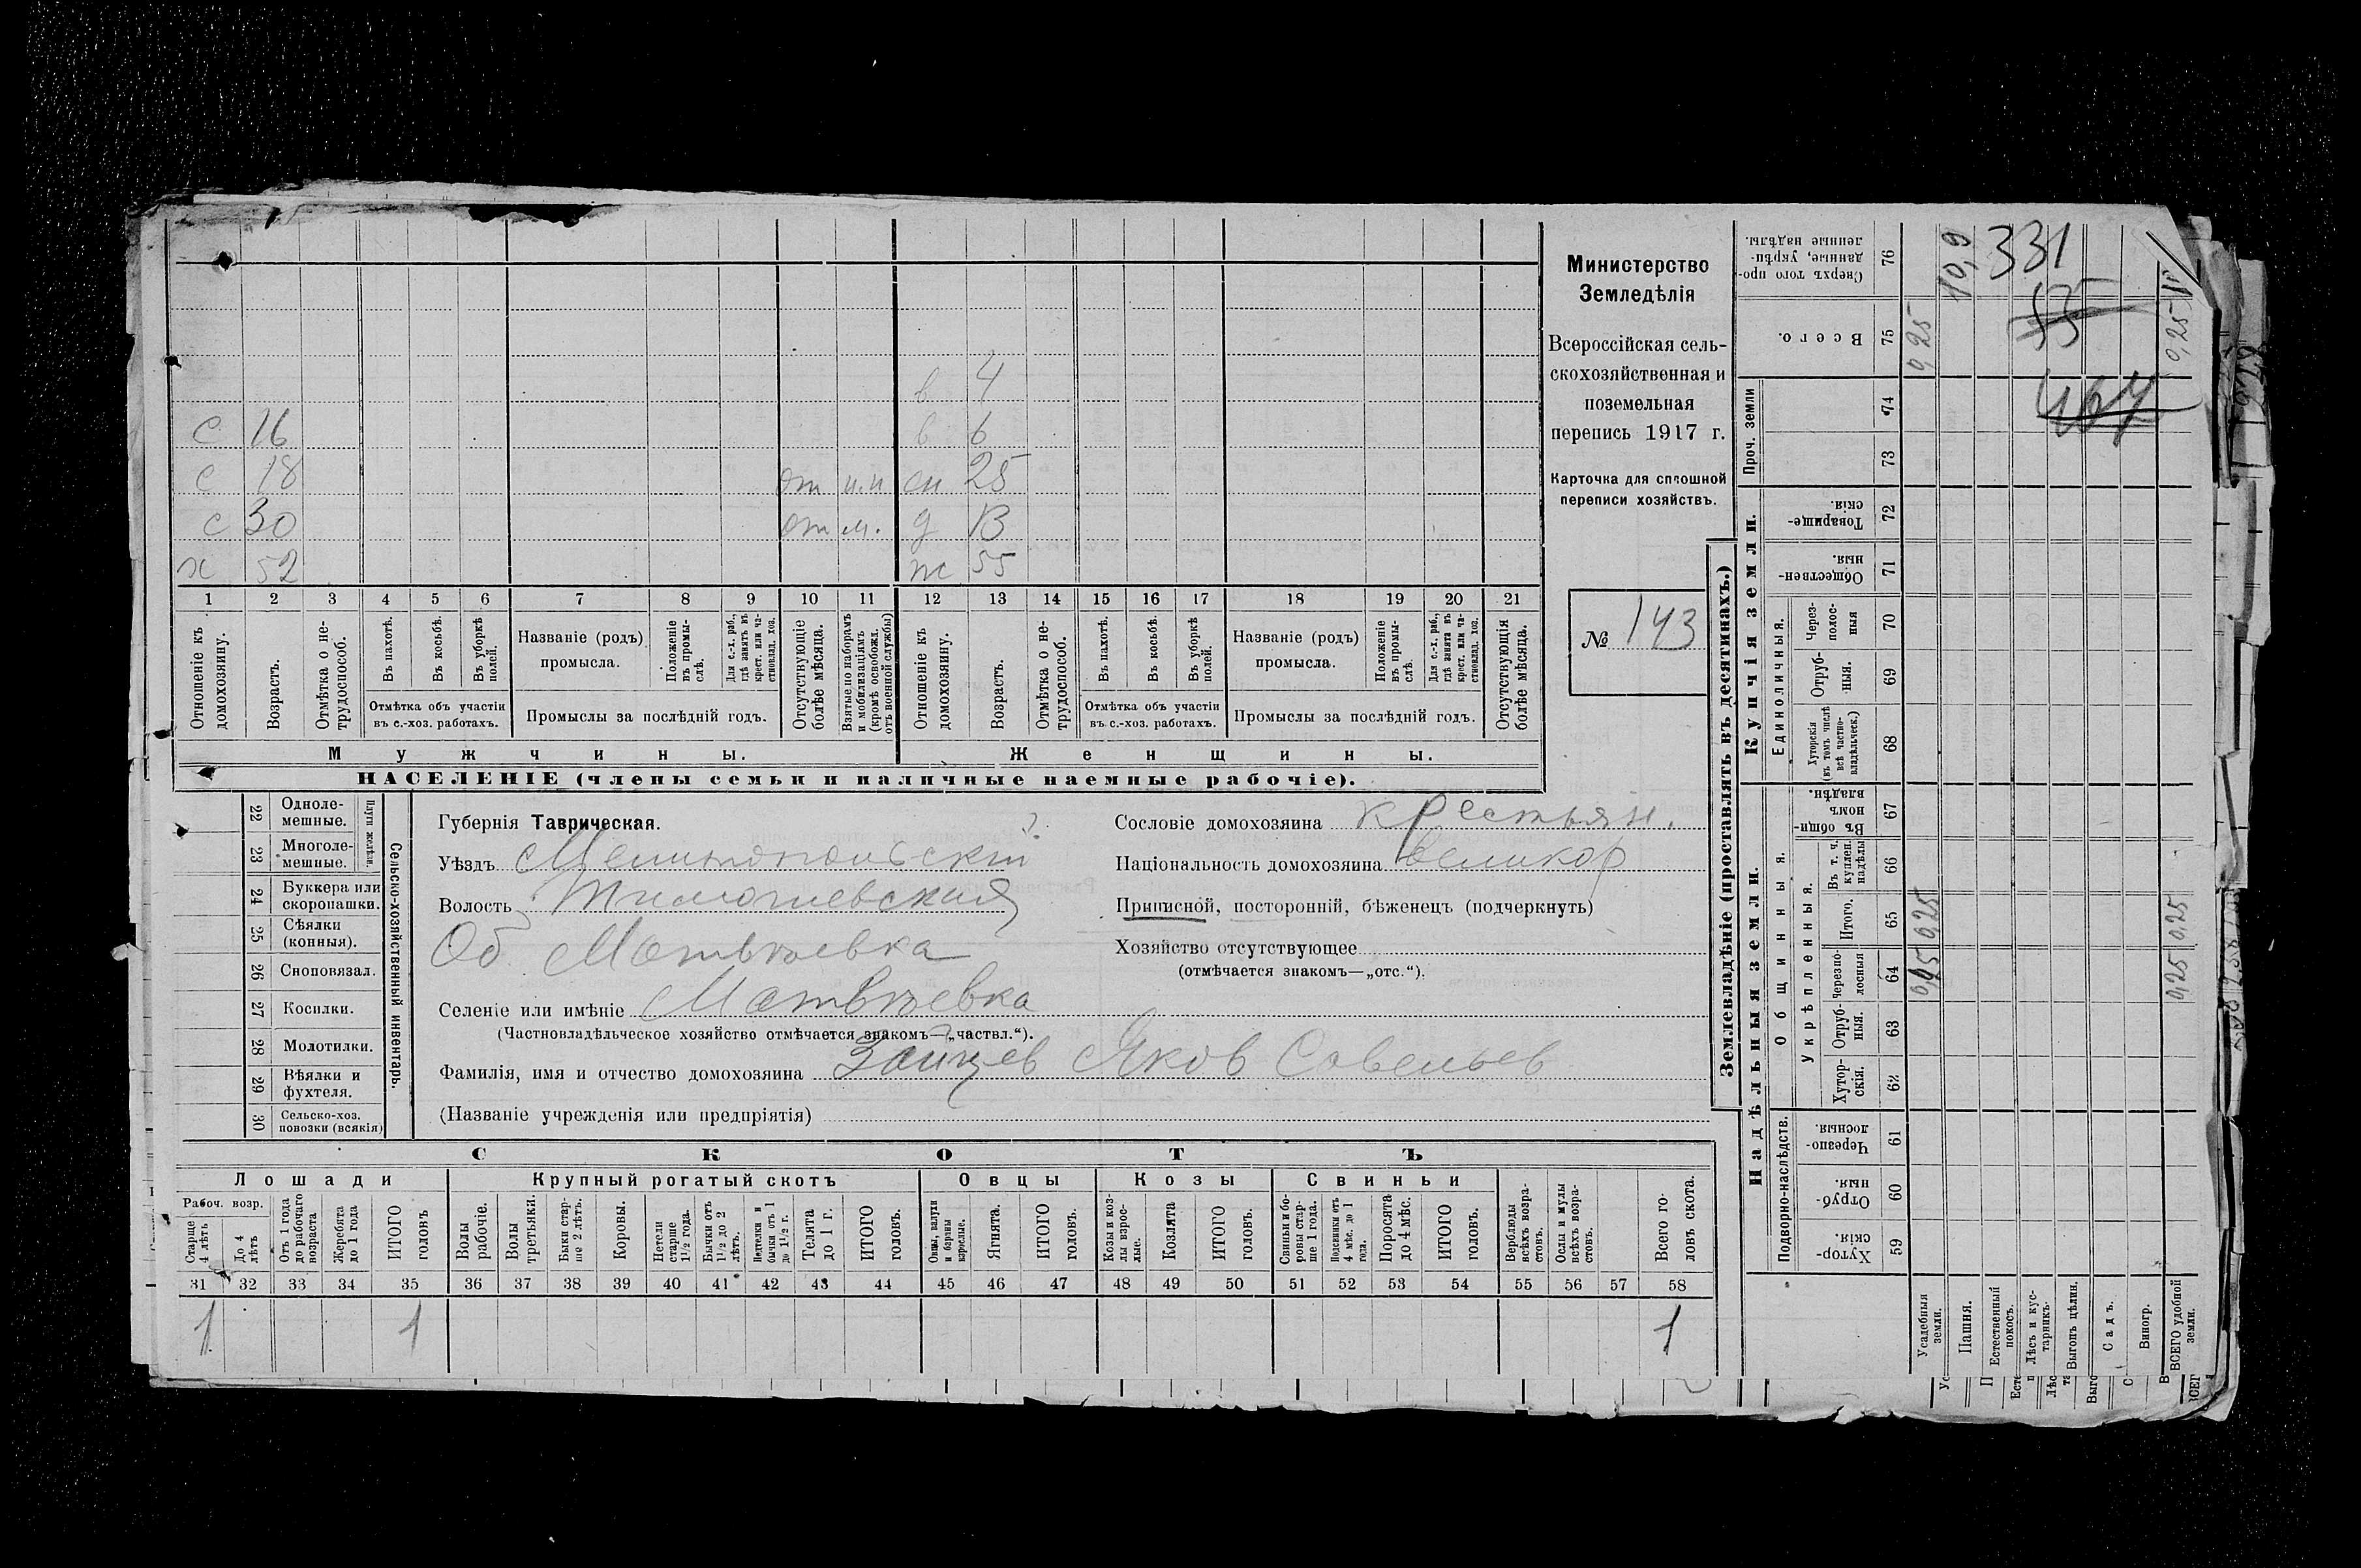 Министерство
Земледѣлія
Всероссійская сель-
скохозяйственная и
поземельная
перепись 1917 г.
Карточка для сплошной
переписи хозяйствъ.
№ 143
в 4
с 16 в 6
с 18 от м.м сн 25
с 30 от м. д 13
х 52 ж 55
1 2 3 4 5 6 7 8 9 10 11 12 13 14 15 16 17 18 19 20 21
Отношеніе къ домохозяину.
Возрастъ.
Отмѣтка о не-трудоспособ.
Въ пахотѣ.
Въ косьбѣ.
Въ уборкѣ полей.
Отмѣтка объ участіи въ с.-хоз. работахъ.
Названіе (родъ) промысла.
Положеніе въ промы-слѣ.
Для с.-х. раб., гдѣ занятъ въ крест. или ча-стновлад. хоз.
Промыслы за послѣдній годъ.
Отсутствующіе болѣе мѣсяца.
Взятые по наборамъ и мобилизаціямъ (кромѣ освобожд. отъ военной службы)
Отношеніе къ домохозяину.
Возрастъ.
Отмѣтка о не-трудоспособ.
Въ пахотѣ.
Въ косьбѣ.
Въ уборкѣ полей.
Отмѣтка объ участіи въ с.-хоз. работахъ.
Названіе (родъ) промысла.
Положеніе въ промы-слѣ.
Для с.-х. раб., гдѣ занята въ крест. или ча-стновлад. хоз.
Промыслы за послѣдній годъ.
Отсутствующія болѣе мѣсяца.
Мужчины. Женщины.
НАСЕЛЕНІЕ (члены семьи и наличные наемные рабочіе).
22 Одноле-мешные.
23 Многоле-мешные.
Плуги желѣзн.
24 Буккера или скоропашки.
25 Сѣялки (конныя).
26 Сноповязал.
27 Косилки.
28 Молотилки.
29 Вѣялки и фухтеля.
30 Сельско-хоз. повозки (всякія)
Сельско-хозяйственный инвентарь.
Губернія Таврическая.
Уѣздъ Мелитопольскій
Волость Тимошевская
Об Матвѣевка
Селеніе или имѣніе Матвѣевка
(Частновладѣльческое хозяйство отмѣчается знакомъ—„частвл.“).
Фамилія, имя и отчество домохозяина Заицев Яков Савельев
(Названіе учрежденія или предпріятія)
Сословіе домохозяина крестьян.
Національность домохозяина великор
Приписной, посторонній, бѣженецъ (подчеркнуть)
Хозяйство отсутствующее
(отмѣчается знакомъ—„отс.“).
СКОТЪ
Лошади Крупный рогатый скотъ Овцы Козы Свиньи
Рабоч. возр.
Старше 4 лѣтъ
До 4 лѣтъ
Отъ 1 года до рабочаго возраста
Жеребята до 1 года
ИТОГО головъ
Волы рабочіе.
Волы третьяки.
Быки стар-ше 2 лѣтъ.
Коровы.
Нетели старше 1½ года.
Бычки отъ 1½ до 2 лѣтъ.
Нетелки и бычки отъ 1 до 1½ г.
Телята до 1 г.
ИТОГО головъ.
Овцы, валухи и бараны взрослые.
Ягнята.
ИТОГО головъ.
Козы и коз-лы взрос-лые.
Козлята
ИТОГО головъ.
Свиньи и бо-ровы стар-ше 1 года.
Подсвинки отъ 4 мѣс. до 1 года.
Поросята до 4 мѣс.
ИТОГО головъ.
Верблюды всѣхъ возра-стовъ.
Ослы и мулы всѣхъ возра-стовъ.
Всего го-ловъ скота.
31 32 33 34 35 36 37 38 39 40 41 42 43 44 45 46 47 48 49 50 51 52 53 54 55 56 57 58
1 1 1
Землевладѣніе (проставлять въ десятинахъ.)
Надѣльныя земли.
Купчія земли.
Проч. земли
Подворно-наслѣдств.
Общинныя.
Укрѣпленныя.
Единоличныя.
Хутор-скія. 59
Отруб-ныя. 60
Черезпо-лосныя. 61
Хутор-скія. 62
Отруб-ныя. 63
Черезпо-лосныя 64
Итого. 65
Въ т. ч. куплен. надѣлы 66
Въ общи-номъ владѣн. 67
Хуторскія (въ томъ числѣ всѣ частно-владѣльческ.) 68
Отруб-ныя. 69
Через-полос-ныя 70
Обществен-ныя. 71
Товарище-скія 72
73
74
Всего. 75
Сверхъ того про-данные, укрѣп-ленные надѣлы. 76
Усадебныя земли. 0,25 0,25 0,25
Пашня. 10,9
Естественный покосъ.
Лѣсъ и кус-тарникъ.
Выгонъ цѣлин.
Садъ.
Виногр.
ВСЕГО удобной земли. 0,25 0,25 0,25
331
55
467